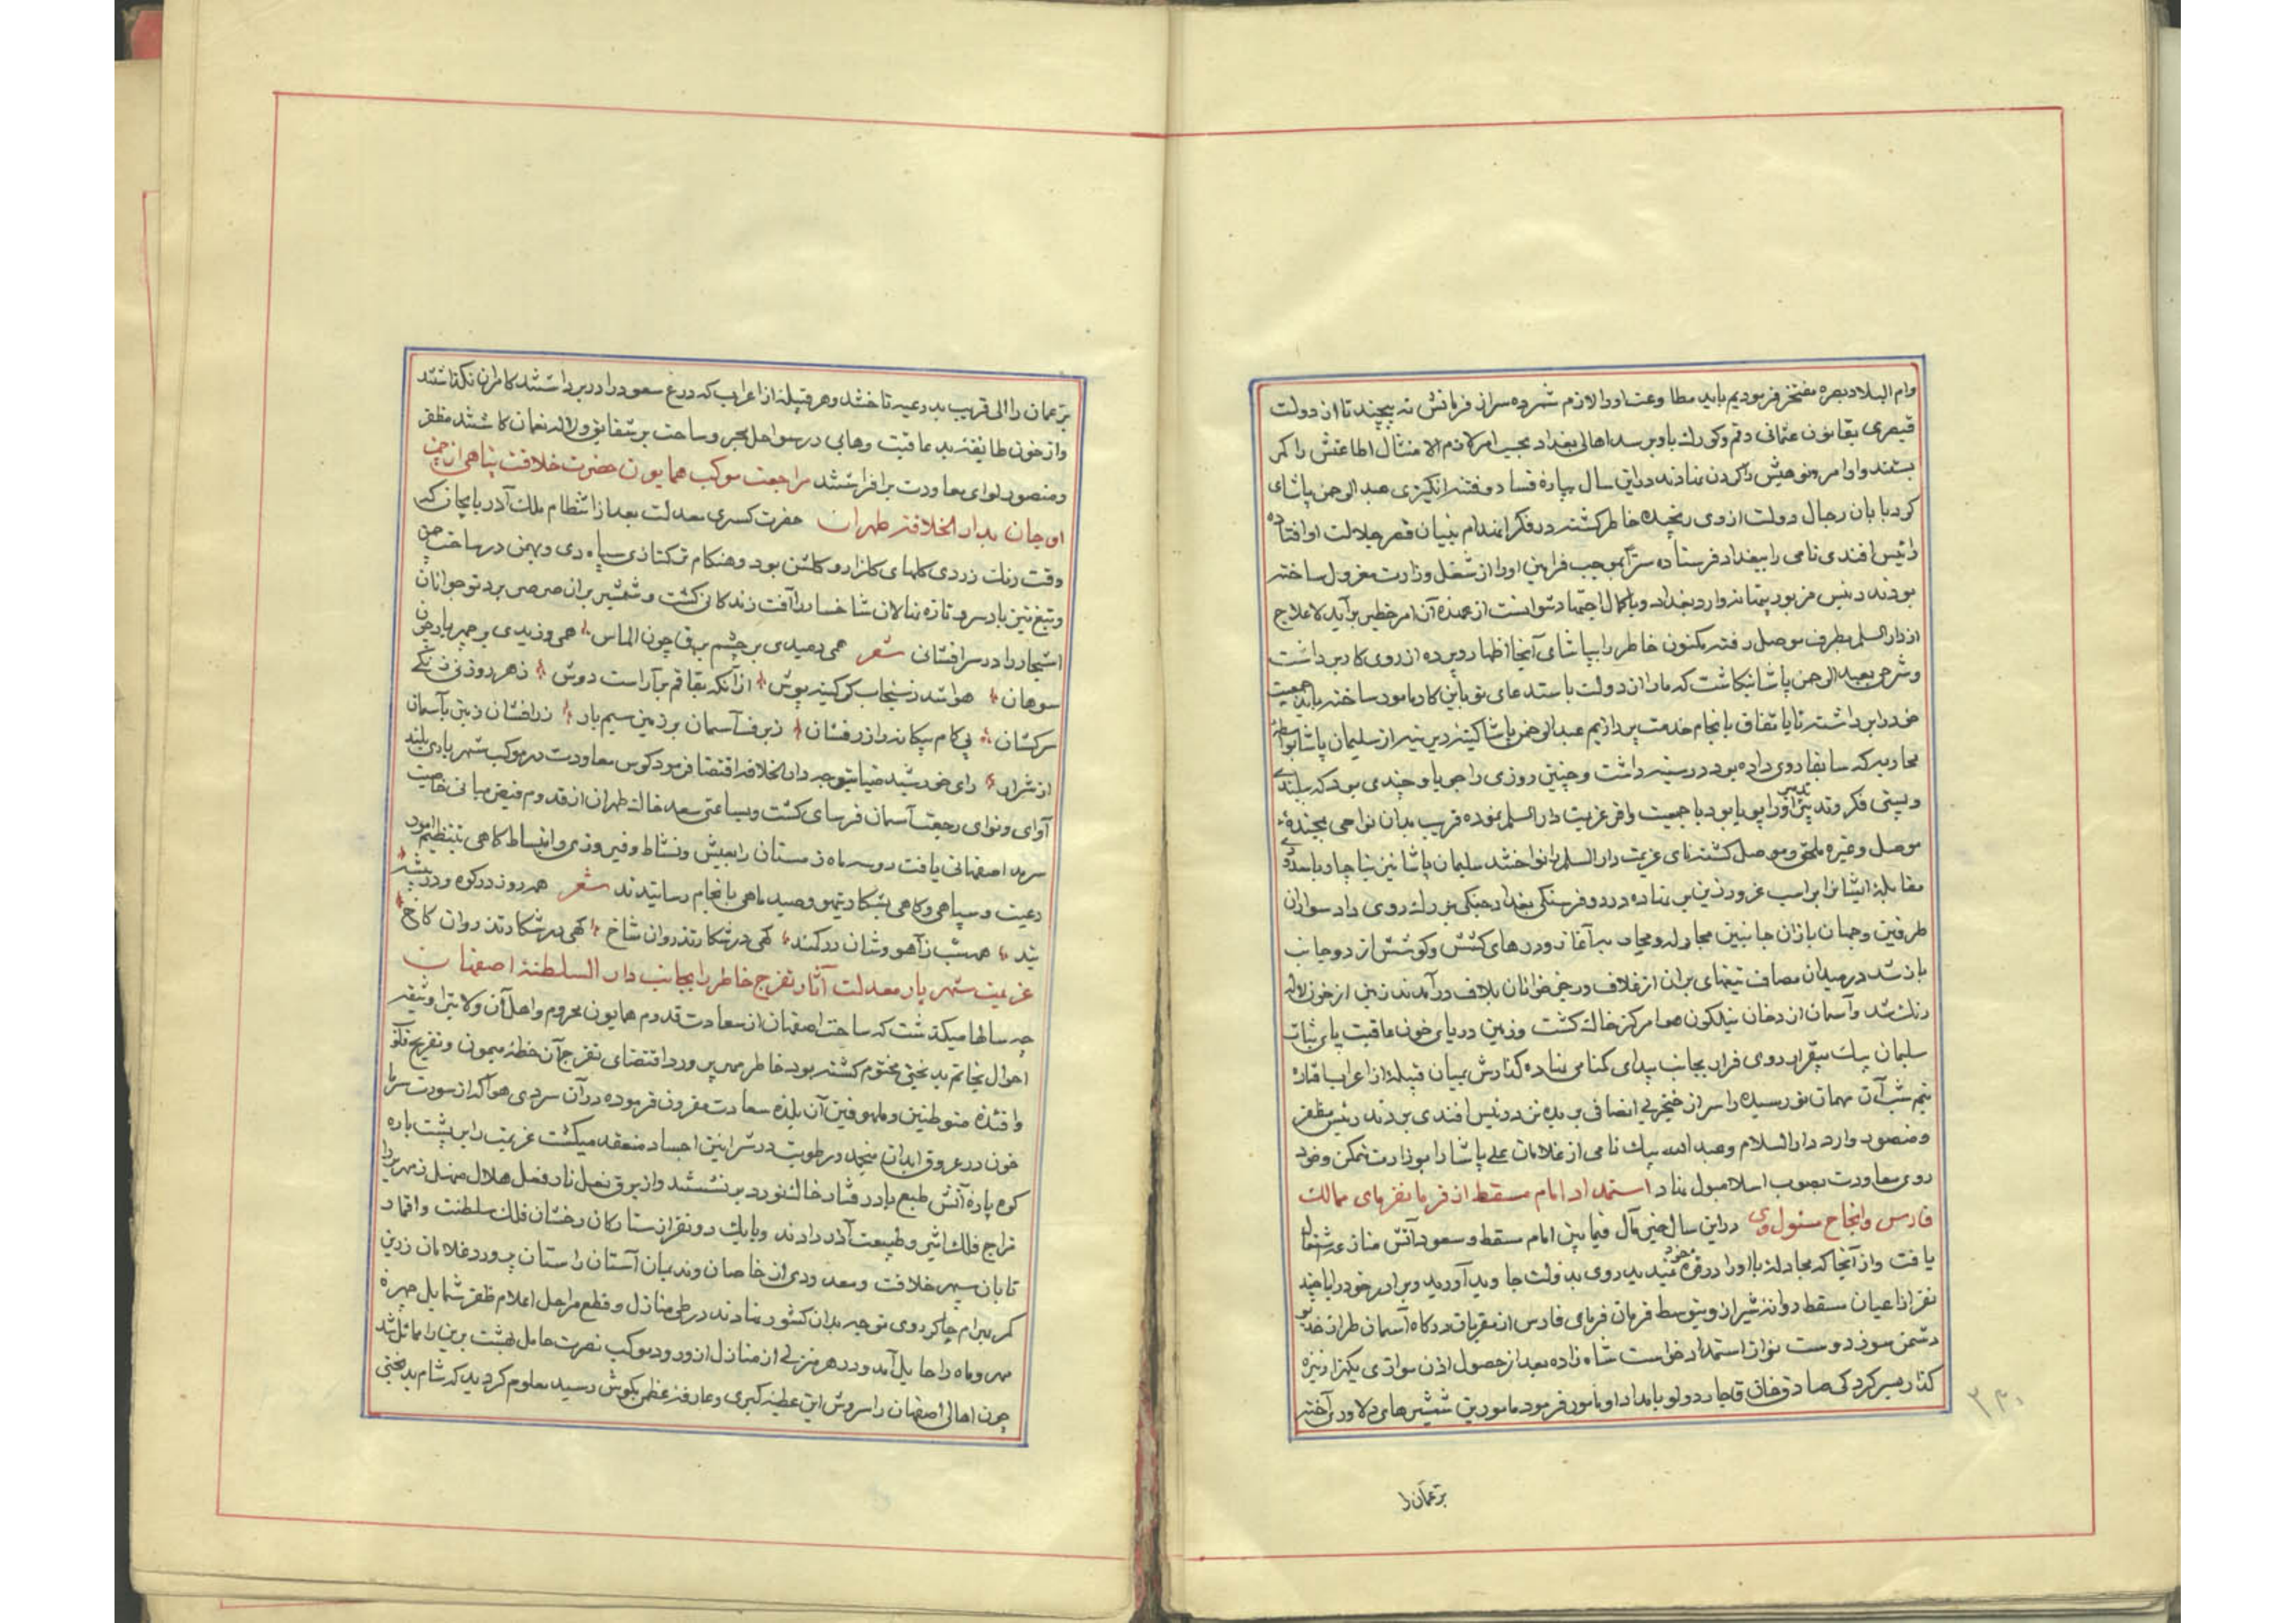 وام البلاد بصره مفتخر فرمودیم باید مطاوعت او را لازم شمرده سر از فرمانش نه پیچند تا از دولت
قیصری بقانون عثمانی رقم وکورک باو برسد اهالی بغداد بحسب امر لازم الامتثال اطاعتش را کمر
بستند و اوامر و نواهیش را کردن نهادند در این سال بپاره فساد و فتنه انکیزی عبدالرحمن پاشای
کرد بابان رجال دولت از وی رنجیده خاطر کشته در فکر انهدام بنیان قصر جلالت او افتاده
رائیس افندی نامی را ببغداد فرستاده سرّاً بموجب فرامین او را از شغل وزارت معزول ساخته
بودند رئیس مزبور پنهانه وارد بغداد و باکمال اجتهاد نتوانست از عهده آن امر خطیر برآید لاعلاج
از دار السلم بطرف موصل رفته مکنون خاطر را بپاشای آنجا اظهار و پرده از روی کار برداشت
و شرحی بعبدالرحمن پاشا نکاشت که ما را از دولت باستدعای تو باین کار مامور ساخته باید جمعیت
خود را برداشته تا باتفاق بانجام خدمت پردازیم عبدالرحمن پاشا کینه دیرینه از سلیمان پاشا بواسطهٔ
محاربه که سابقا روی داده بود در سینه داشت و چنین روزی را جویا و چندی بود که ببلندی
و پستی فکر و تدبیر اورا پویا بود با جمعیت وافر عزیمت دار السلم نموده قریب بدان نواحی بجندهٔ
موصل و غیره ملحق و موصل کشته نای عزیمت دار السلم را نواختند سلیمان پاشا نیز ناچار با معدودی
مقابلهٔ ایشانرا بر اسب غرور زین بر نهاده در دو فرسنکی بغداد جنکی بزرک روی داد سواران
طرفین و جهان بازان جانبین مجادله و محاربه آغاز و درهای کشش و کوشش از دو جانب
باز شد در میدان مصاف تیغهای بران از غلاف و رجز خوانان بلاف درآمدند زمین از خون لاله
رنک شد و آسمان از دخان نیلکون هوا مرکز خاک کشت و زمین دریای خون عاقبت پای ثبات
سلیمان بیک بیقرار روی فرار بجانب بیدای کمنامی نهاده کذارش بمیان قبیلهٔ از اعراب افتاده
نیم شب آن مهمان نورسیده را سر از خنجر بی انصافی بریده نزد رئیس افندی بردند رئیس مظفر
و منصور وارد دار السلام و عبدالله بیک نامی از غلامان علی پاشا را بوزارت متمکن و خود
روی معاودت بصوب اسلامبول نهاد استمداد امام مسقط از فرمانفرمای ممالک
فارس و انجاح مسئول وی در این سال خیر مآل فیما بین امام مسقط و سعود آتش منازعه اشتعال
یافت و از آنجا که مجادله با او را در قوه خود ندید روی بدولت جاوید آورده و برادر خود را با چند
نفر از اعیان مسقط روانه شیراز و بتوسط فرمان فرمای فارس از مقربان درکاه آسمان طراز خدیو
دشمن سوز دوست نواز استمداد خواست شاه زاده بعد از حصول اذن موازی یکهزار نیزه
کذار بسر کردکی صادق خان قاجار دولو بامداد او مامور فرمود مامورین شمشیرهای دلاوری آخته
بر عمان را
۲۳۰
بر عمان را الی قریب بدرعیه تاختند و هر قبیله از اعراب که درع سعود را در بر داشتند کامران نکذاشتند
و از خون طایفه بد عاقبت وهابی در سواحل بحر و ساحت بر شقایق و لاله نعمان کاشتند مظفر
و منصور لوای معاودت برافراشتند مراجعت موکب همایون حضرت خلافت پناهی از چمن
اوجان بدار الخلافه طهران حضرت کسری معدلت بعد از انتظام ملک آذربایجان که
وقت رنک زردی کلهای کلزار و کلشن بود و هنکام ترکتازی سپاه دی و بهمن در ساحت چمن
و تیغ تیز باد سرد تازه نهالان شاخسار را آفت زندکانی کشت و شمشیر بران صرصر برد نوجوانان
اشجار را در سر افشانی شعر همی دمیدی بر چشم برق چون الماس همی وزیدی بر چهر باد چون
سوهان هوا شد ز سنجاب کوکینه پوش از آنکه بقاقم برآراست دوش ز هر روزنی زنکی
سرکشان پی کام پیکانه واز رفشان ز برف آسمان بر زمین سیم بار ز رافشان زمین بآسمان
از شرار رای خورشید ضیا بتوجه دار الخلافه اقتضا فرمود کوس معاودت در موکب شهریاری بلند
آوای و نوای رجعت آسمان فرسای کشت و بساعتی سعد خاک طهران از قدوم فیض مبانی خاصیت
سرمه اصفهانی یافت دو سه ماه زمستان را بعیش و نشاط و فیروزی و انبساط کاهی بتنظیم امور
رعیت و سپاهی و کاهی بشکار تیهو و صید ماهی بانجام رسانیدند شعر همه روز در کوه و در بیشه
بند همه شب ز آهو وشان در کمند کهی در شکار تذروان شاخ کهی در شکار تذروان کاخ
عزیمت شهریار معدلت آثار تفرج خاطر را بجانب دار السلطنهٔ اصفهان
چه سالها میکذشت که ساحت اصفهان از سعادت قدوم همایون محروم و اهل آن ولایت را وثیقه
احوال بخاتم بدبختی مختوم کشته بود خاطر مهر پرور را اقتضای تفرج آن خطهٔ میمون و تفریح قلوب
وافئدهٔ متوطنین و ملهوفین آن بلده سعادت مقرون فرموده در آن سردی هوا که از سورت سرما
خون در عروق ابدان منجمد و رطوبت در شرائین اجساد منعقد میکشت عزیمت را بر پشت باره
کوه پارهٔ آتش طبع باد رفتار خاک نورد بر نشستند و از برق نعل نار فعل هلال مثل زمهریر را
مزاج فلک اثیر و طبیعت آذر دادند و با یک دو نفر از ستارکان رخشان فلک سلطنت و اقمار
تابان سپهر خلافت و معدودی از خاصان و ندیمان آستان راستان پرور و غلامان زرین
کمر بهرام چاکر روی توجه بدان کشور نهادند در طی منازل و قطع مراحل اعلام ظفر شمایل چهرهٔ
مهر و ماه را حایل آمد و در هر منزلی از منازل از ورود موکب نصرت حامل بهشت برین را مماثل شد
چون اهالی اصفهان را سروش این عطیه کبری و عارفه عظمی بکوش رسید معلوم کردید که شام بدبختی